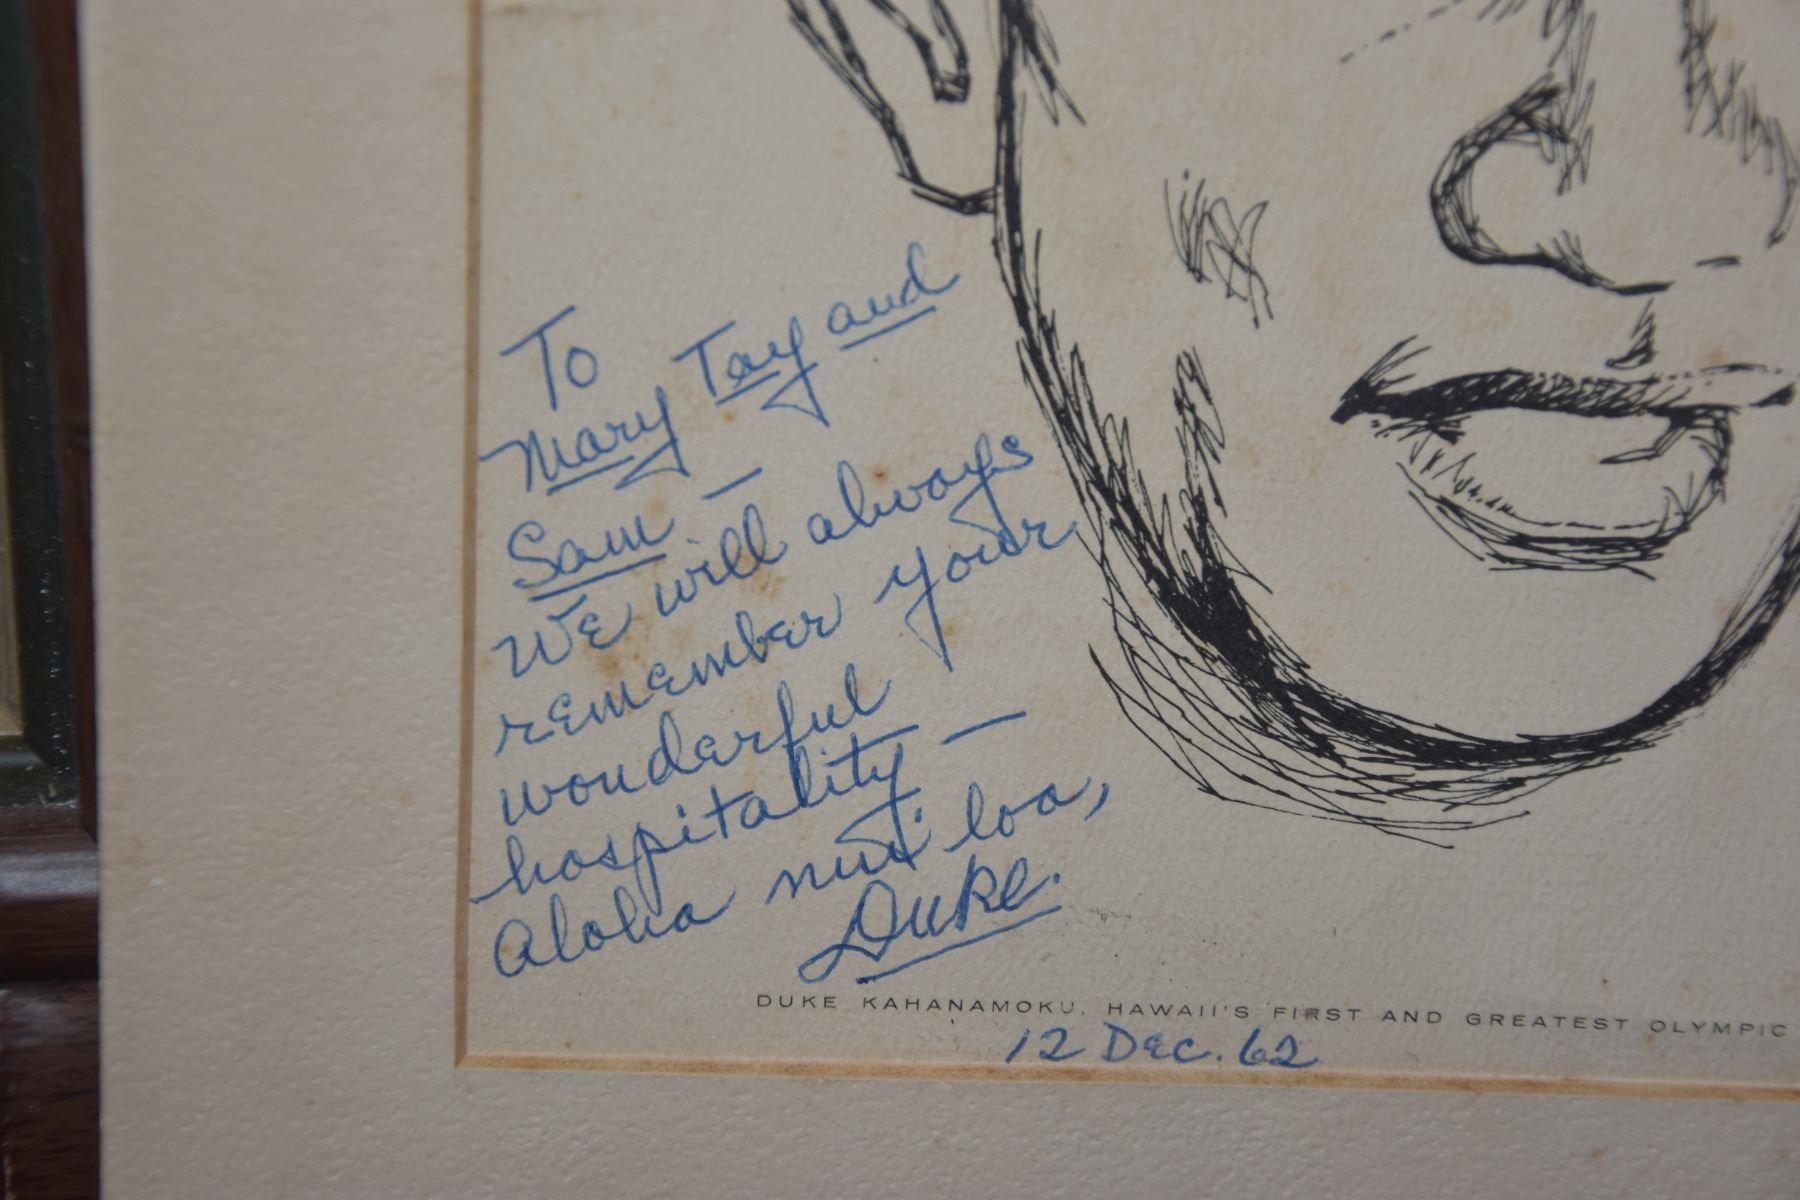 To
Mary Tay and
Sam —
We will always
remember your
wonderful
hospitality —
Aloha nui loa,
Duke.
DUKE KAHANAMOKU, HAWAII'S FIRST AND GREATEST OLYMPIC
12 Dec. 62